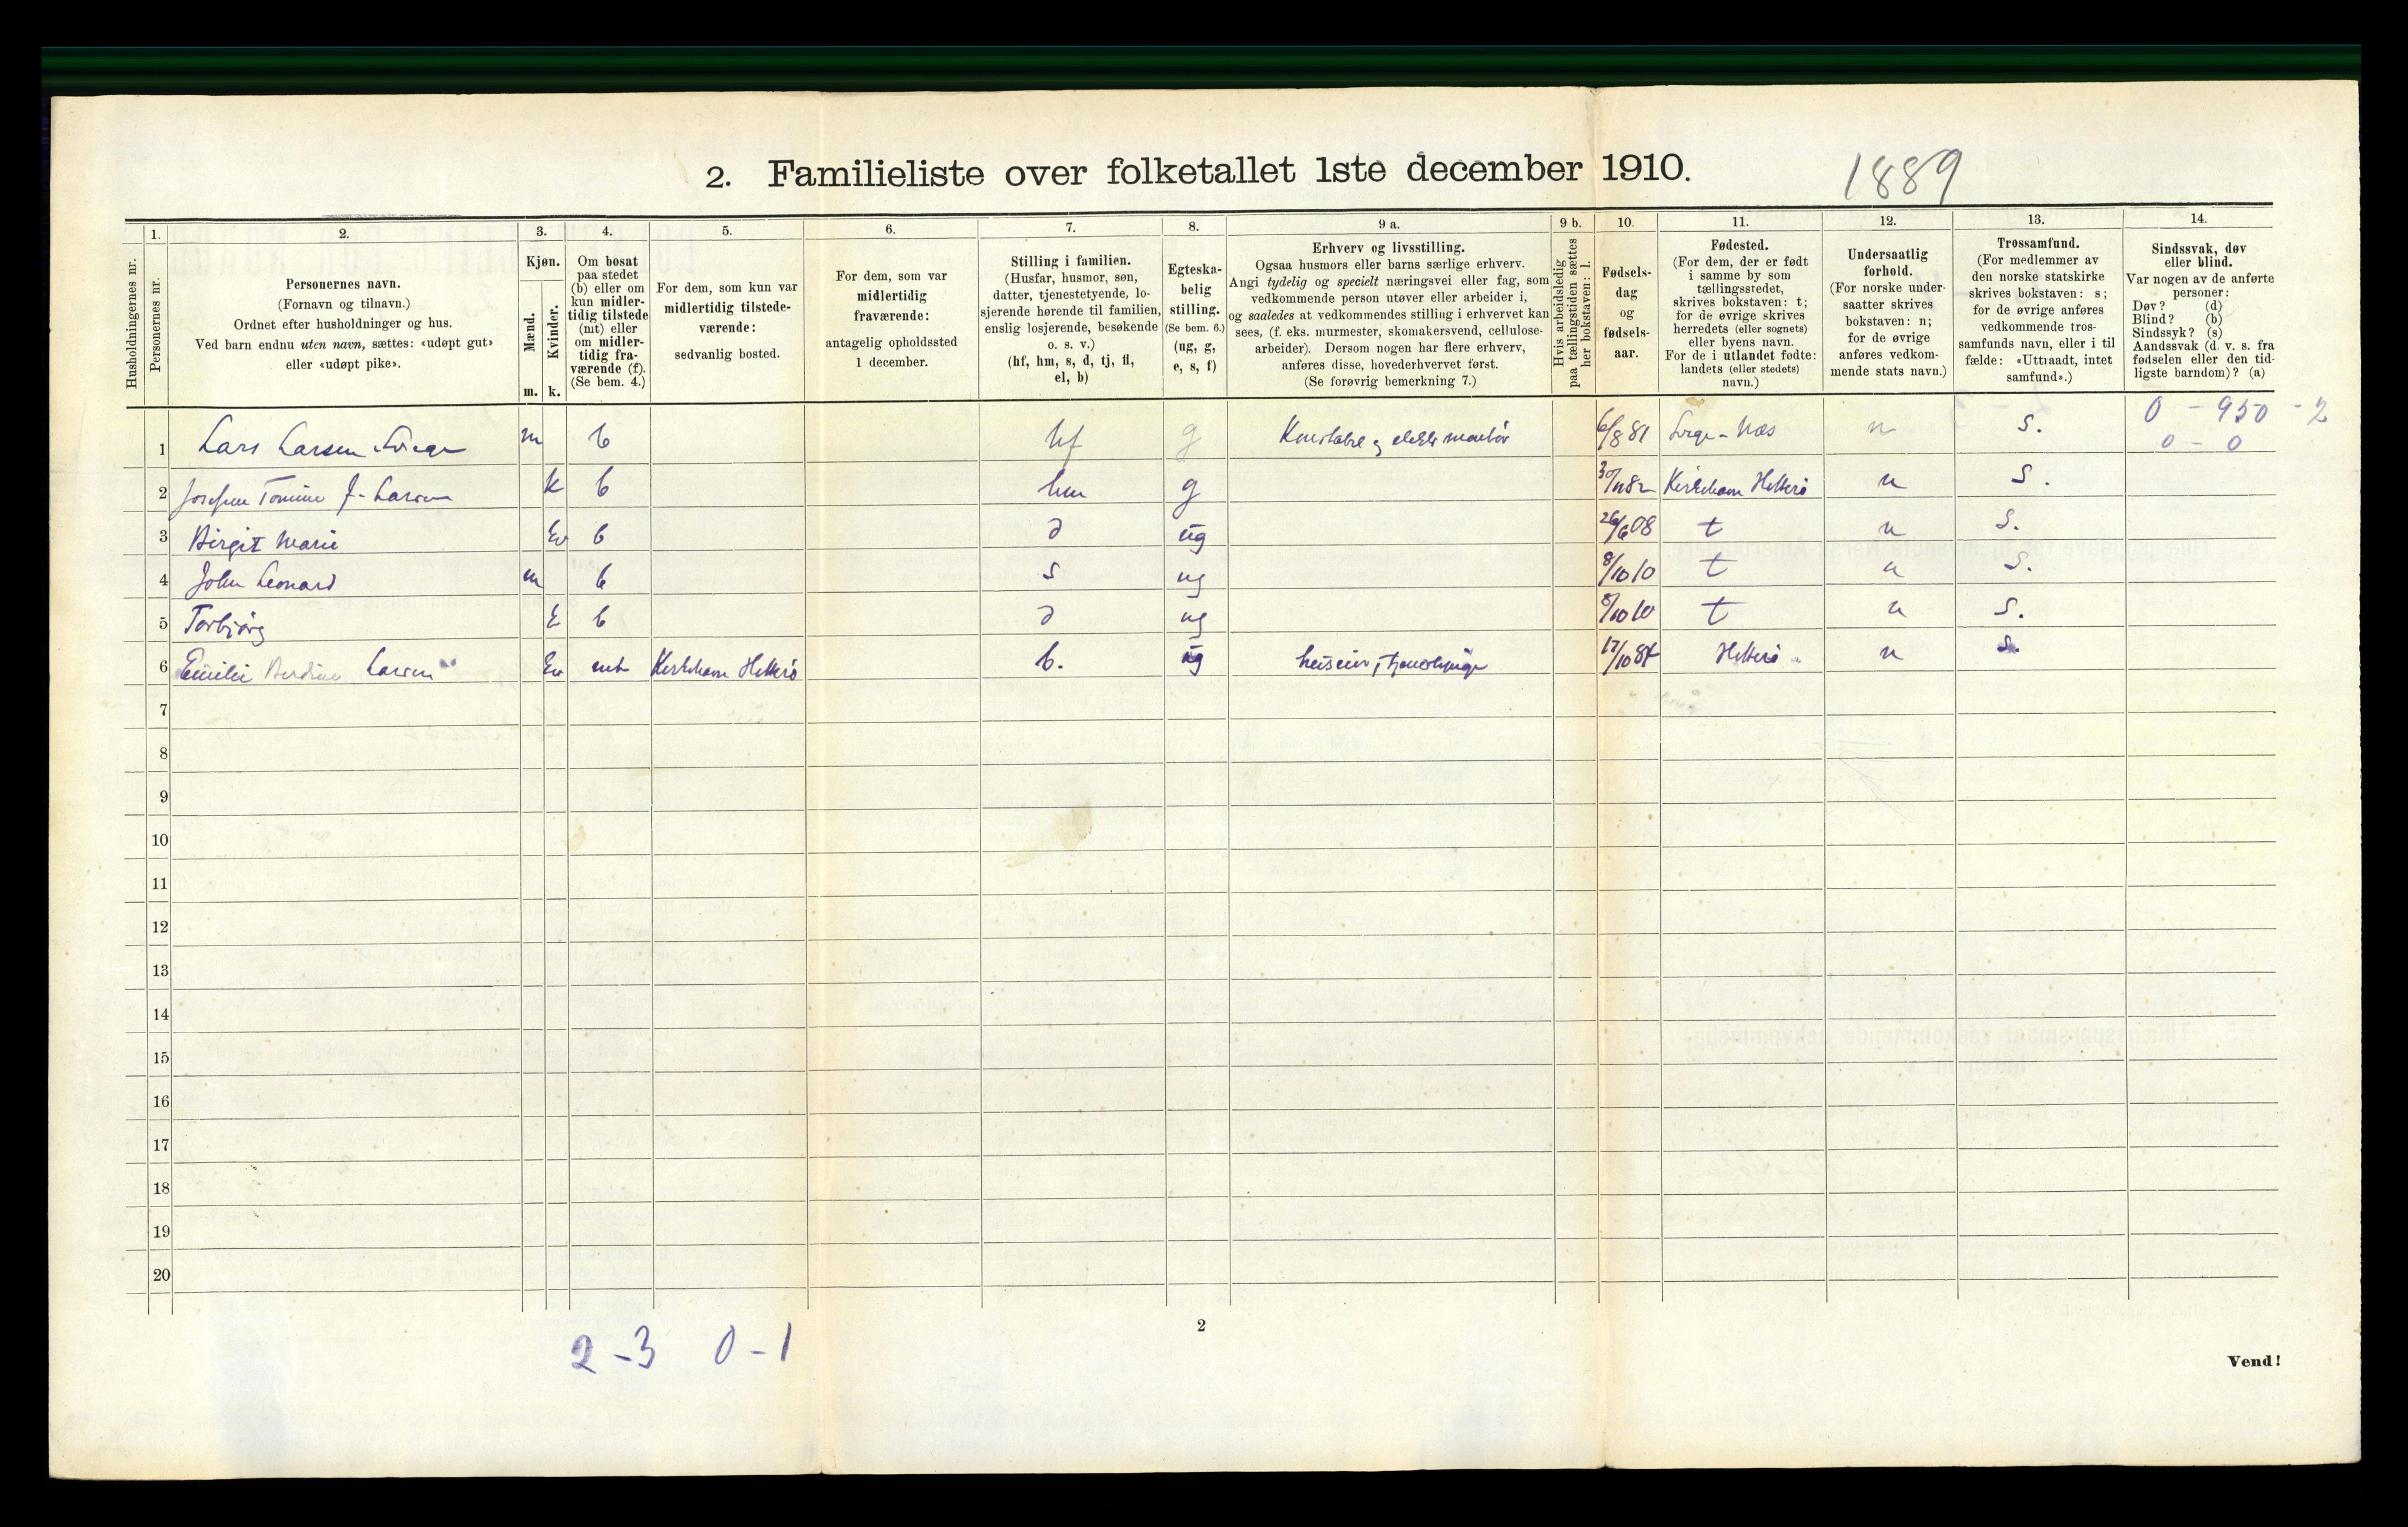 2. Familieliste over folketallet 1ste december 1910.
1889
Husholdningernes nr.
1.
Personernes nr.
2.
Personernes navn.
(Fornavn og tilnavn.)
Ordnet efter husholdninger og hus.
Ved barn endnu uten navn, sættes: «udøpt gut»
eller «udøpt pike».
3.
Kjøn.
Mænd.
Kvinder.
m. k.
4.
Om bosat
paa stedet
(b) eller om
kun midler-
tidig tilstede
(mt) eller
om midler-
tidig fra-
værende (f).
(Se bem. 4.)
5.
For dem, som kun var
midlertidig tilstede-
værende:
sedvanlig bosted.
6.
For dem, som var
midlertidig
fraværende:
antagelig opholdssted
1 december.
7.
Stilling i familien.
(Husfar, husmor, søn,
datter, tjenestetyende, lo-
sjerende hørende til familien,
enslig losjerende, besøkende
o. s. v.)
(hf, hm, s, d, tj, fl,
el, b)
8.
Egteska-
belig
stilling.
(Se bem. 6.)
(ug, g,
e, s, f)
9 a.
Erhverv og livsstilling.
Ogsaa husmors eller barns særlige erhverv.
Angi tydelig og specielt næringsvei eller fag, som
vedkommende person utøver eller arbeider i,
og saaledes at vedkommendes stilling i erhvervet kan
sees, (f. eks. murmester, skomakersvend, cellulose-
arbeider). Dersom nogen har flere erhverv,
anføres disse, hovederhvervet først.
(Se forøvrig bemerkning 7.)
9 b.
Hvis arbeidsledig
paa tællingstiden sættes
her bokstaven: l.
10.
Fødsels-
dag
og
fødsels-
aar.
11.
Fødested.
(For dem, der er født
i samme by som
tællingsstedet,
skrives bokstaven: t;
for de øvrige skrives
herredets (eller sognets)
eller byens navn.
For de i utlandet fødte:
landets (eller stedets)
navn.)
12.
Undersaatlig
forhold.
(For norske under-
saatter skrives
bokstaven: n;
for de øvrige
anføres vedkom-
mende stats navn.)
13.
Trossamfund.
(For medlemmer av
den norske statskirke
skrives bokstaven: s;
for de øvrige anføres
vedkommende tros-
samfunds navn, eller i til-
fælde: «Uttraadt, intet
samfund».)
14.
Sindssvak, døv
eller blind.
Var nogen av de anførte
personer:
Døv? (d)
Blind? (b)
Sindssyk? (s)
Aandssvak (d. v. s. fra
fødselen eller den tid-
ligste barndom)? (a)
0 - 950 - 2
0 - 0
1 Lars Larsen m b hf g 6/8 81 n s.
2 Tomine J. Larsen k b hm g 30/11 82 Kirkehavn Hitterø n s.
3 Birgit Marie k b d ug 26/6 08 t n s.
4 John Leonard m b s ug 8/10 10 t n s.
5 Torbjørg k b d ug 8/10 10 t n s.
6 Emilie Larsen k mt Kirkehavn Hitterø b. ug Hitterø n s.
7
8
9
10
11
12
13
14
15
16
17
18
19
20
2 - 3 0 - 1
2
Vend!